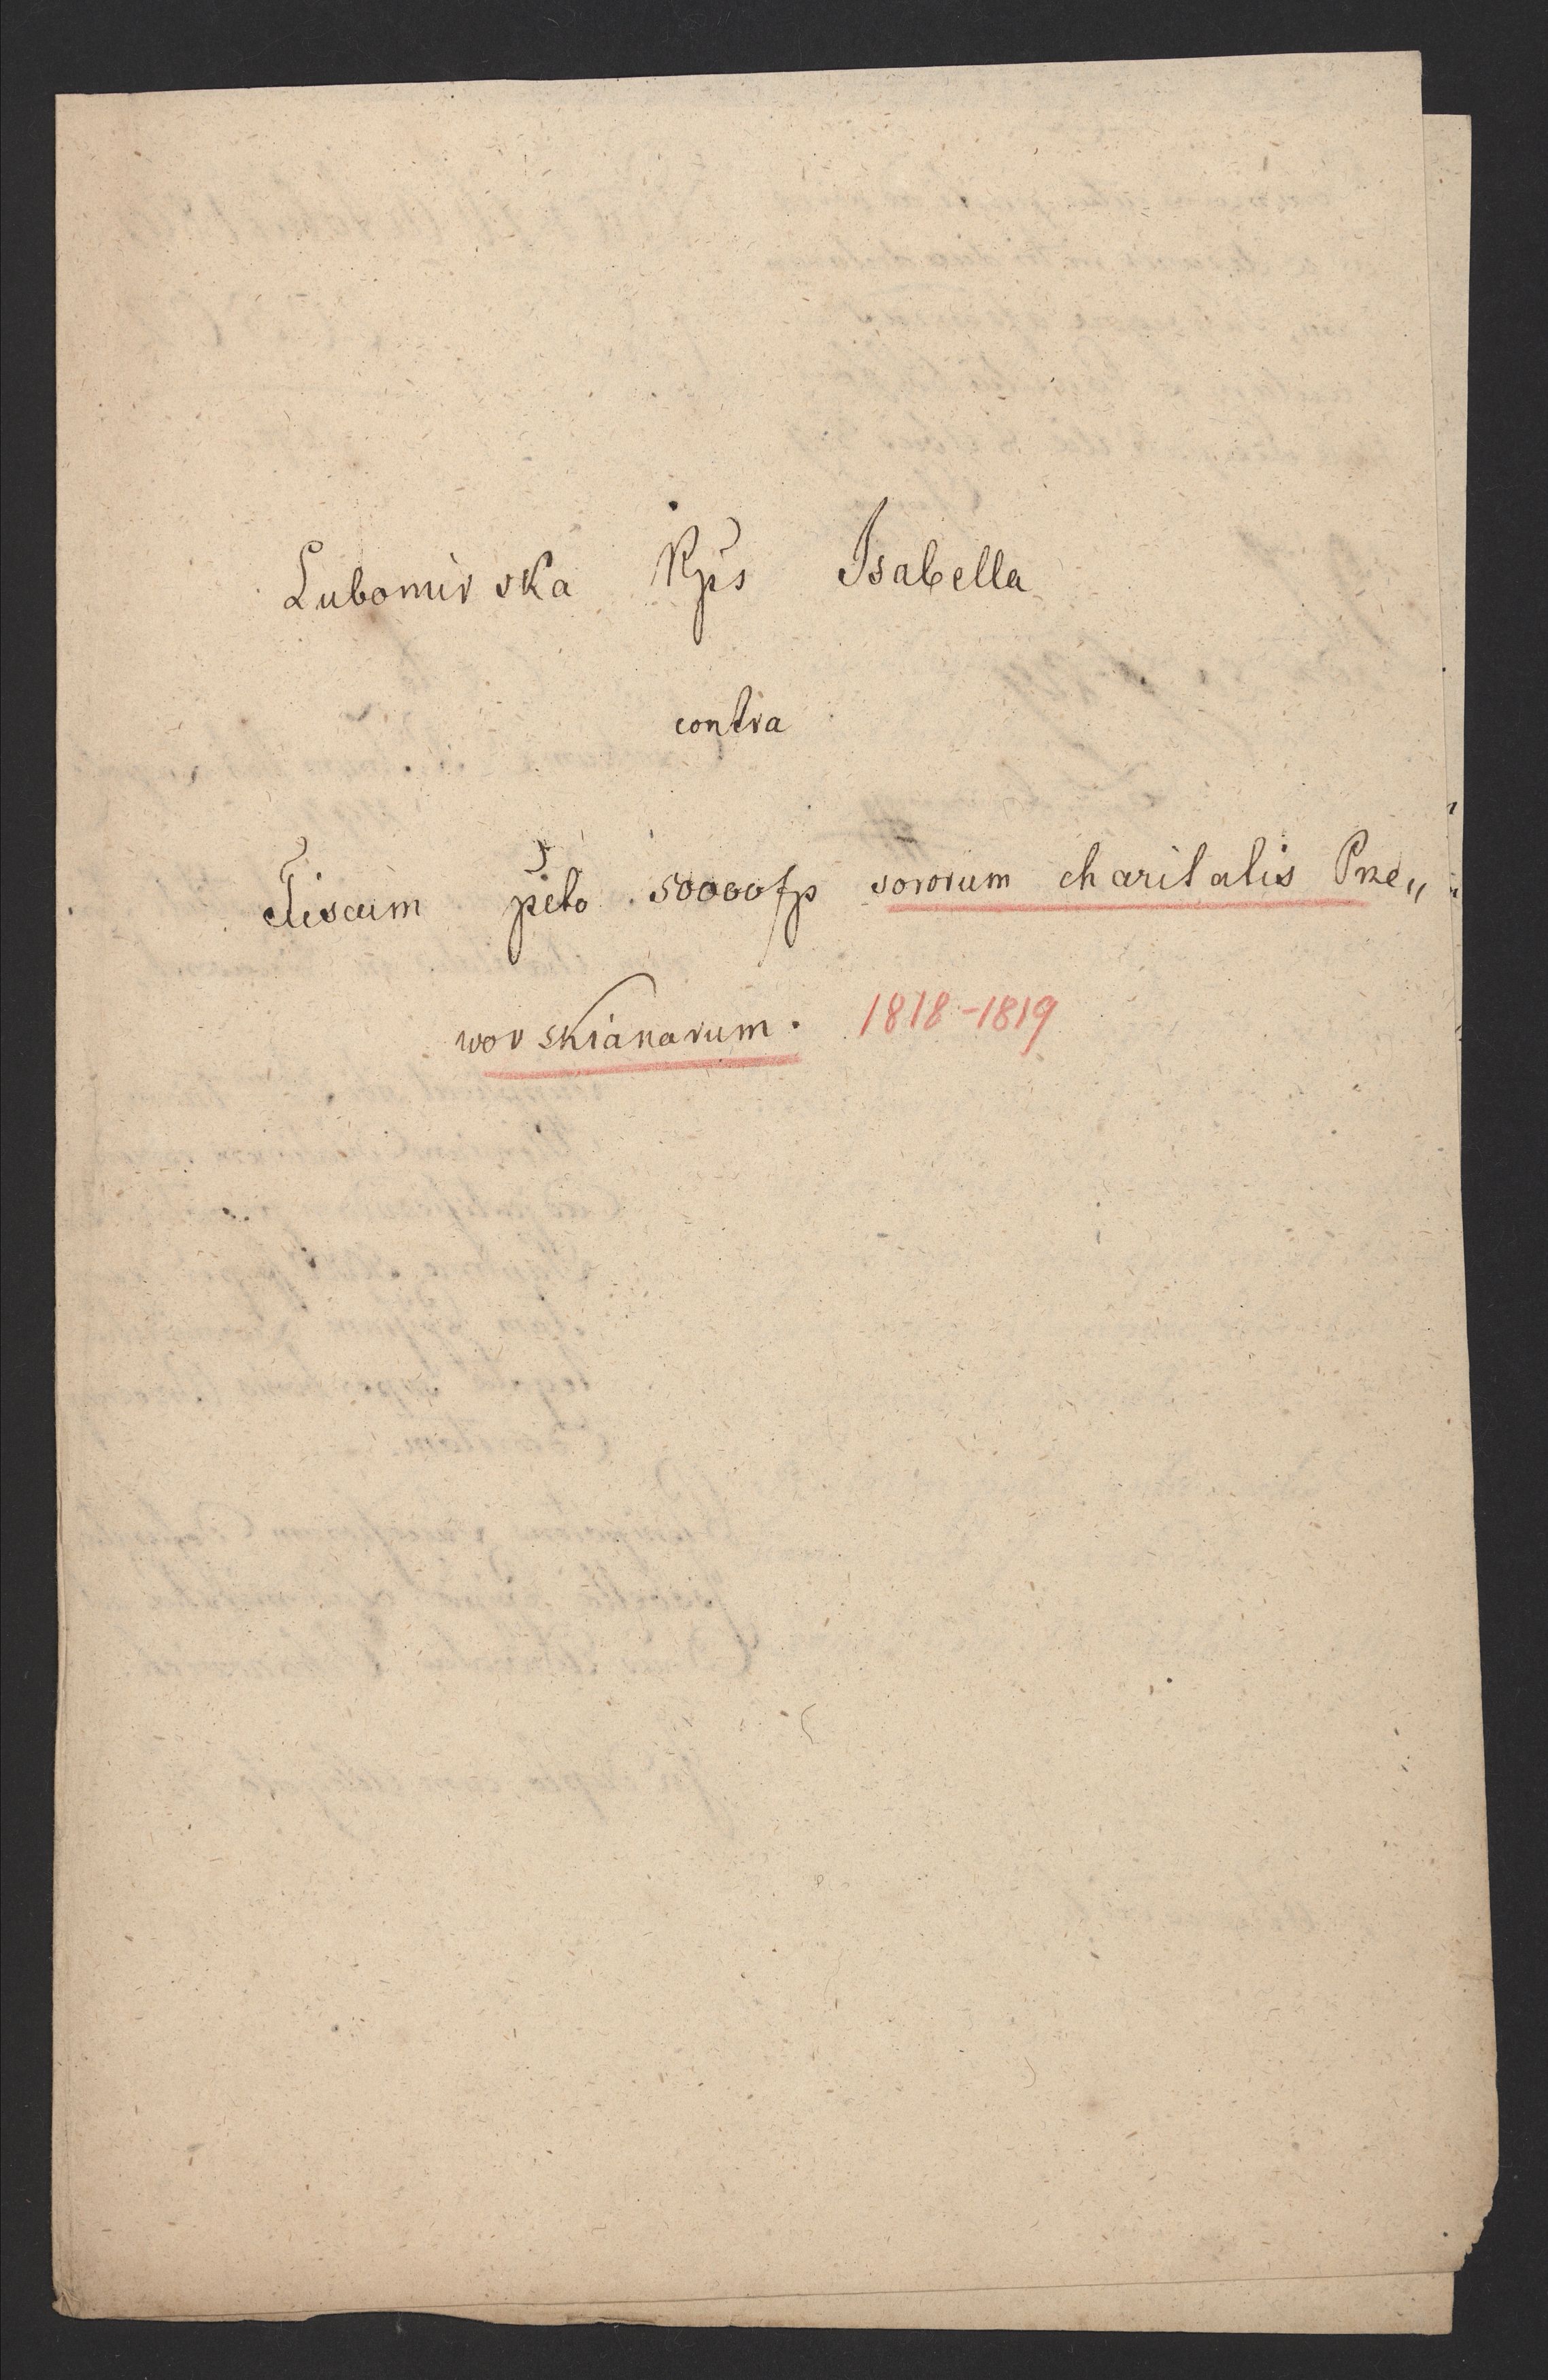 Lubomirska Kps Isabella
contra
Fiscum pcto 50000 fp sororum charitatis Prze„
worskianarum. 1818-1819